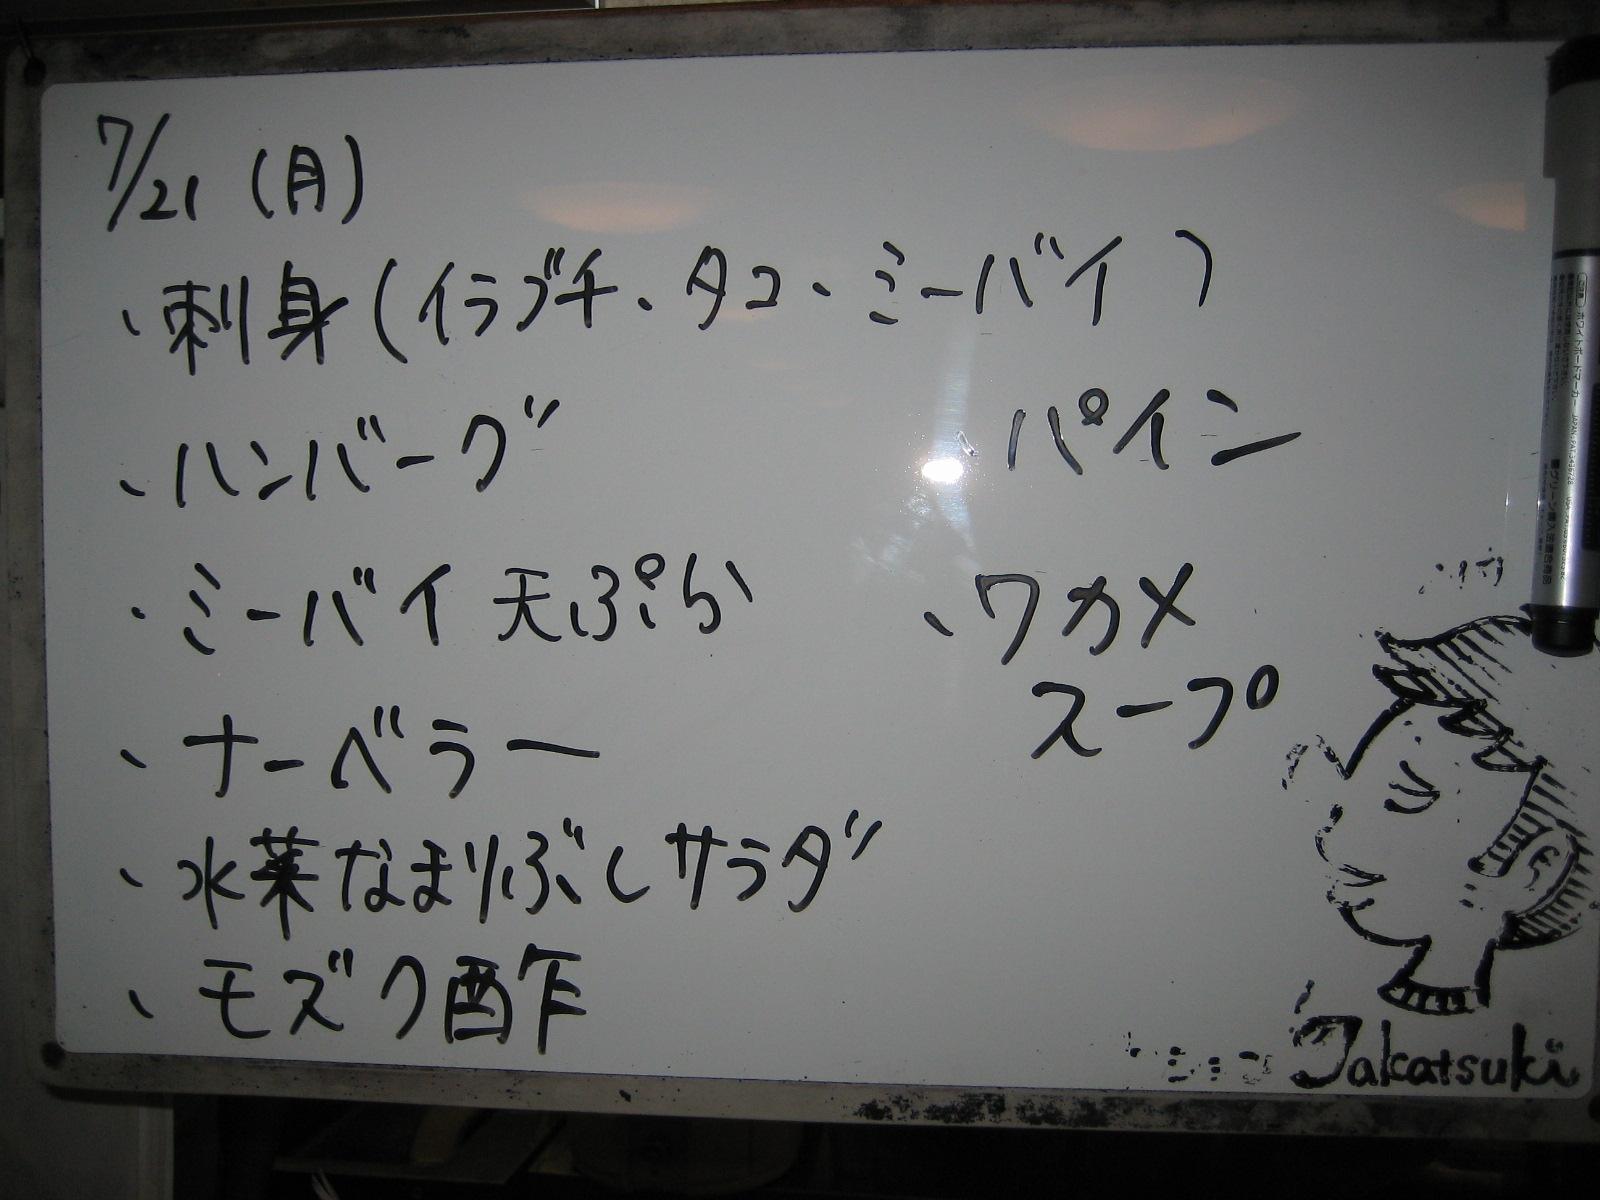 7/21 (月)
、刺身(イラブチ、タコ、ミーバイ)
、ハンバーグ
、パイン
・ミーバイ天ぷら
、ワカメ
スープ
、ナーベラー
、水菜なまりぶしサラダ
、モズク酢
Takatsuki
ホワイトボードマーカー